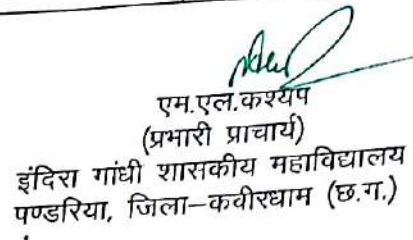 एम.एल.कश्यप
(प्रभारी प्राचार्य)
इंदिरा गांधी शासकीय महाविद्यालय
पण्डरिया, जिला–कवीरधाम (छ.ग.)